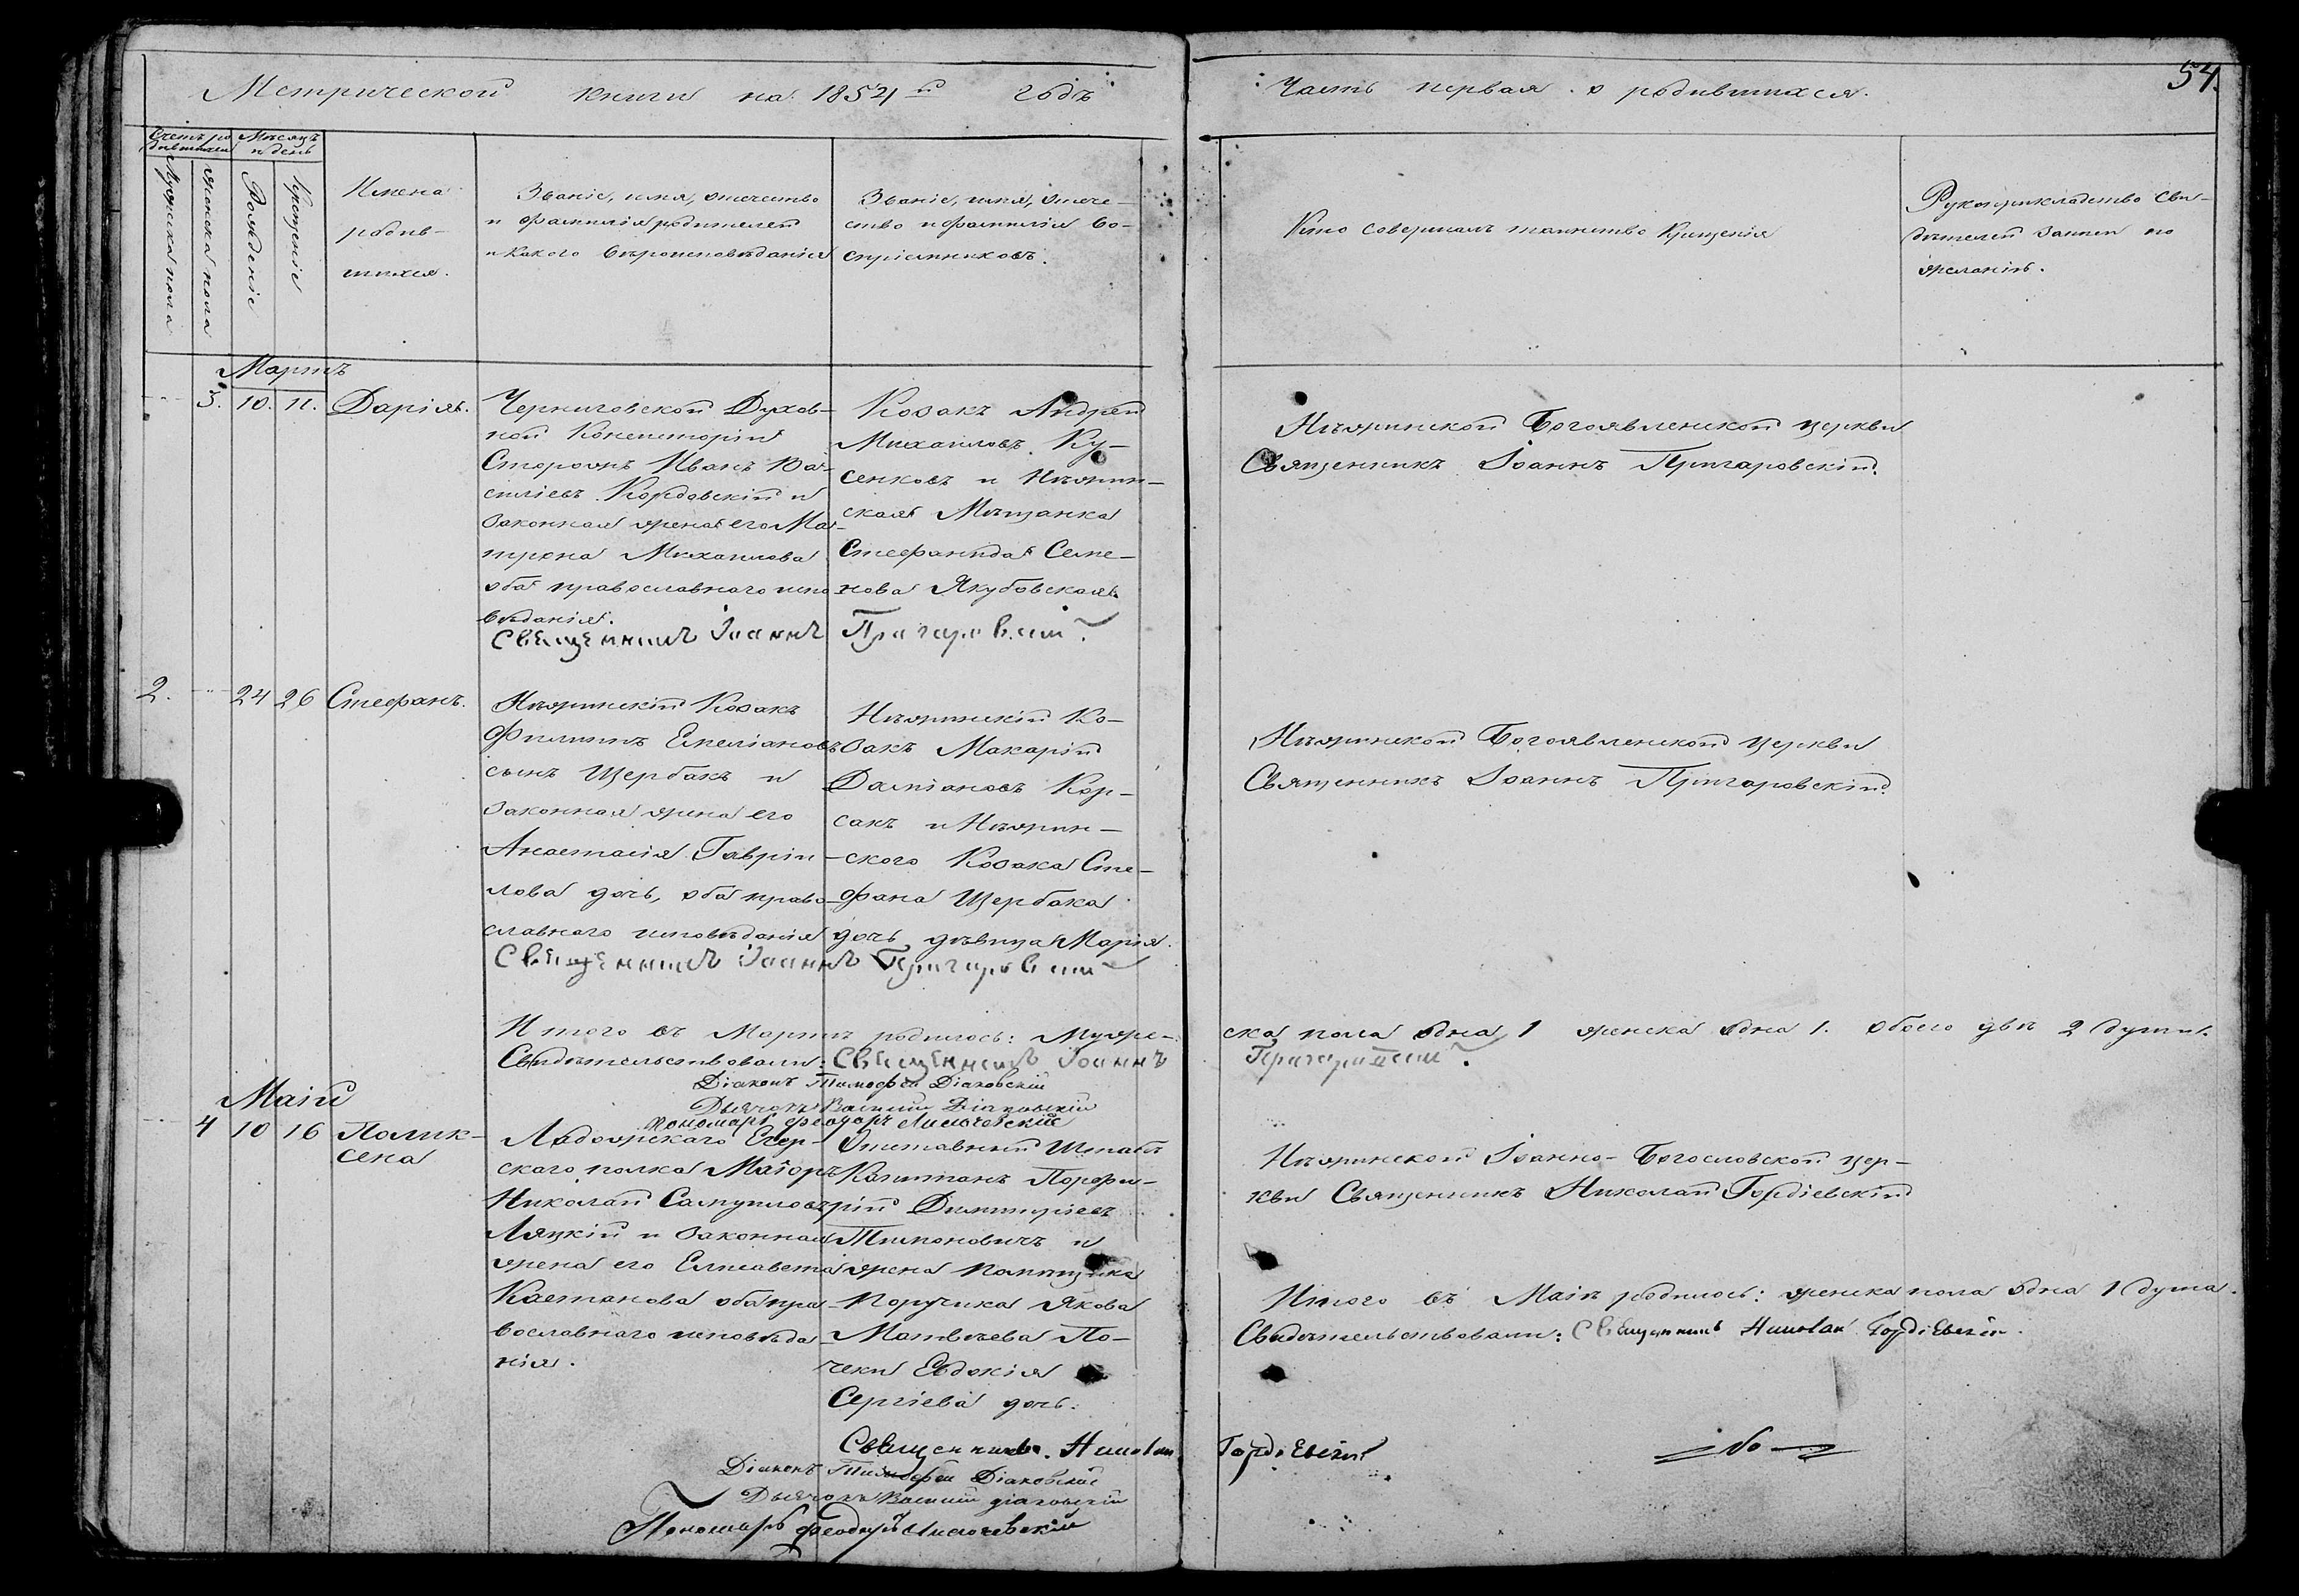 Метрической книги на 1854й годъ
Часть первая о родившихся.
54.
Счетъ родившихся
Мѣсяцъ и день
Мужеска пола
Женска пола
Рожденіе
Крещеніе
Имена
родив-
шихся.
Званіе, имя, отечество
и фамилія родителей
и какого вѣроисповѣданія
Званіе, имя, отече-
ство и фамилія во-
спріемниковъ.
Кто совершалъ таинство Крещенія
Рукоприкладство сви-
дѣтелей записи по
желанію.
Мартъ
3. 10. 11. Дарія.
Черниговской Духов-
ной Консисторіи
Сторожъ Иванъ Ва-
силіевъ Кордовскій и
законная жена его Ма-
трона Михаилова
оба православнаго испо-
вѣданія.
Козакъ Андрей
Михаиловъ Ку-
сенковъ и Нѣжин-
ская Мѣщанка
Стефанида Семе-
нова Якубовская.
Нѣжинской Богоявленской церкви
Священникъ Іоаннъ Пригаровскій.
Священникъ Іоаннъ Пригаровскій.
2. 24 26 Стефанъ.
Нѣжинскій Козакъ
Филиппъ Емеліановъ
сынъ Щербакъ и
законная жена его
Анастасія Гавріи-
лова дочь, оба право-
славного исповѣданія
Нѣжинскій Ко-
закъ Макарій
Даміановъ Кор-
сакъ и Нѣжин-
ского Козака Сте-
фана Щербака
дочь дѣвица Марія.
Нѣжинской Богоявленской церкви
Священникъ Іоаннъ Пригаровскій.
Священникъ Іоаннъ Пригаровскій
Итого въ Мартѣ родилось: Муже-
ска пола одна 1 женска одна 1. обоего двѣ 2 души.
Свидѣтельствовали: Священникъ Іоаннъ
Пригаровскій.
Діаконъ Тимофей Діаковскій
Дьячокъ Василій Діаковскій
Пономарь Феодоръ
Маій
4 10 16 Полик-
сена
Ладожскаго Егер-
скаго полка Маіоръ
Николай Самуиловъ
Ляцкій и законная
жена его Елисавета
Кастанова оба пра-
вославнаго исповѣда-
нія.
Отставный Штабъ
Капитанъ Порфи-
рій Димитріевъ
Тимоновичъ и
жена помѣщика
Поручика Якова
Матвѣева По-
чеки Евдокія
Сергіева дочь.
Нѣжинской Іоанно-Богословской цер-
кви Священникъ Николай Гордіевскій
Итого въ Маіѣ родилось: женска пола одна 1 душа.
Свидѣтельствовали: Священникъ Николай Гордіевскій.
Священникъ Николай
Гордіевскій
Діаконъ Тимофей Діаковскій
Дьячокъ Василій Діаковскій
Пономарь Феодоръ